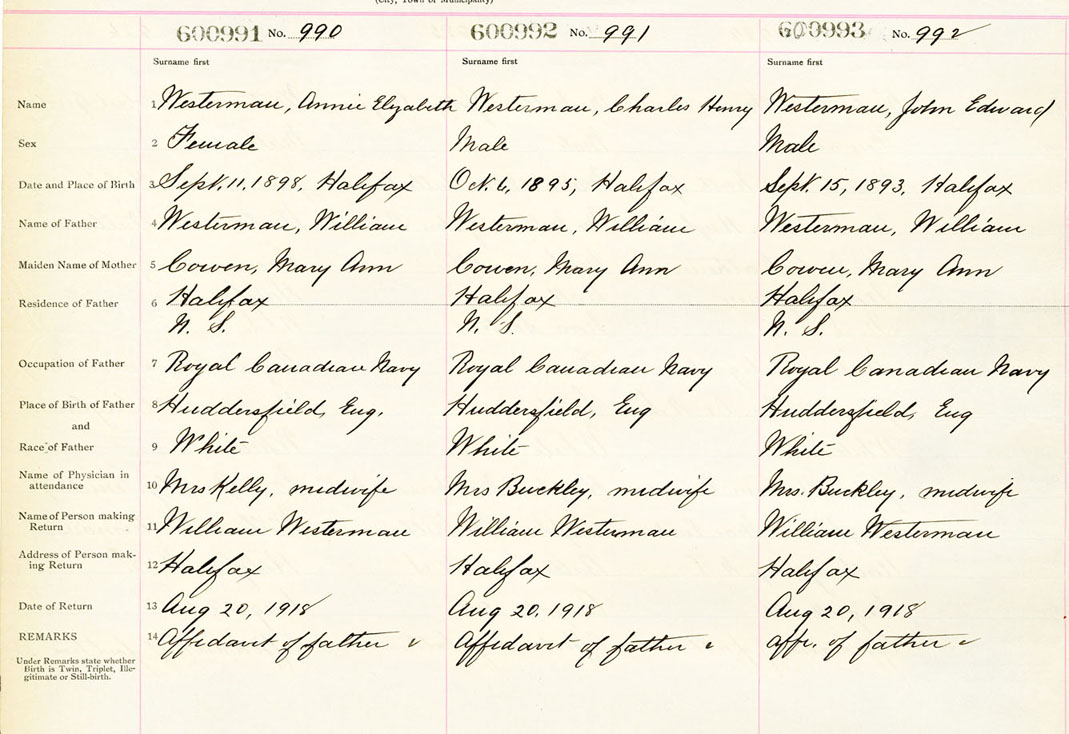 (City, Town or Municipality)
600991 No. 990 600992 No. 991 600993 No. 992
Surname first Surname first Surname first
Name 1 Westerman, Annie Elizabeth Westerman, Charles Henry Westerman, John Edward
Sex 2 Female Male Male
Date and Place of Birth 3 Sept. 11, 1898, Halifax Oct. 6, 1895, Halifax Sept. 15, 1893, Halifax
Name of Father 4 Westerman, William Westerman, William Westerman, William
Maiden Name of Mother 5 Cowen, Mary Ann Cowen, Mary Ann Cowen, Mary Ann
Residence of Father 6 Halifax Halifax Halifax
N. S. N. S. N. S.
Occupation of Father 7 Royal Canadian Navy Royal Canadian Navy Royal Canadian Navy
Place of Birth of Father 8 Huddersfield, Eng. Huddersfield, Eng Huddersfield, Eng
and
Race of Father 9 White White White
Name of Physician in
attendance 10 Mrs Kelly, midwife Mrs Buckley, midwife Mrs. Buckley, midwife
Name of Person making
Return 11 William Westerman William Westerman William Westerman
Address of Person mak-
ing Return 12 Halifax Halifax Halifax
Date of Return 13 Aug 20, 1918 Aug 20, 1918 Aug 20, 1918
REMARKS 14 Affidavit of father Affidavit of father affi. of father
Under Remarks state whether
Birth is Twin, Triplet, Ille-
gitimate or Still-birth.